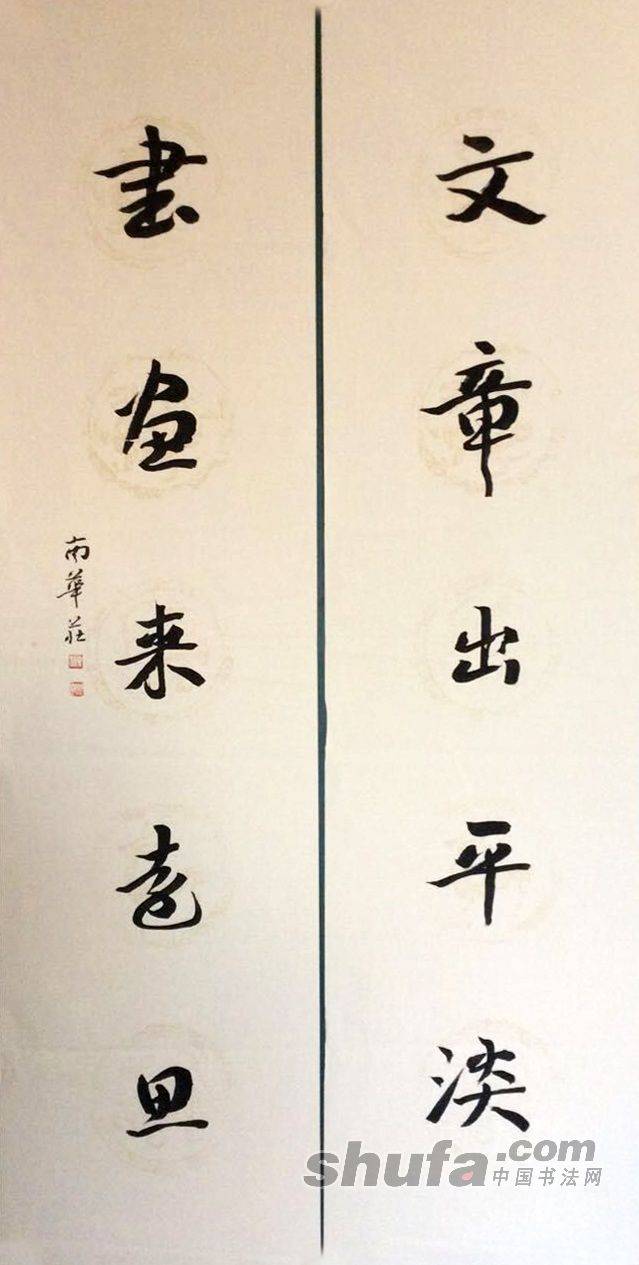 文章出平淡
書画来遠思
南華莊
shufa.com
中国书法网